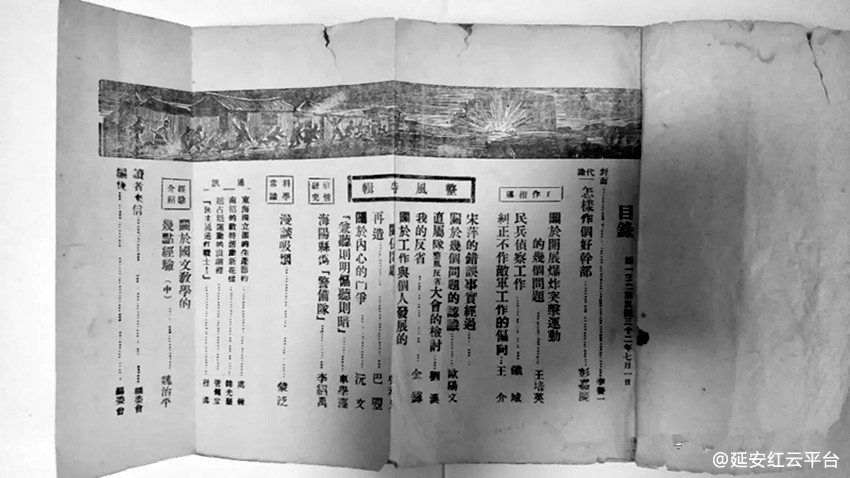 目錄
民國三十二年七月一日
封面……李善一
代論
怎樣作個好幹部……彭嘉慶
工作指導
關於開展爆炸突擊運動
的幾個問題……王培英
民兵偵察工作……鐵城
糾正不作敵軍工作的偏向…王介
整風專輯
宋萍的錯誤事實經過
關於幾個問題的認識……歐陽文
直屬隊整風反省大會的檢討……劉溪
我的反省
關於工作與個人發展的
關係問題
再造……巴
關於內心的鬥爭……沅文
「兼聽則明偏聽則暗」……車學藻
敵情研究
海陽縣僞『警備隊』……李紹禹
科學常識
漫談吸煙……蒙泛
通訊
東海獨立團的生產節約
經驗介紹
關於國文教學的
幾點經驗（中）……魏治平
讀者來信……編委會
編後……編委會
@延安红云平台